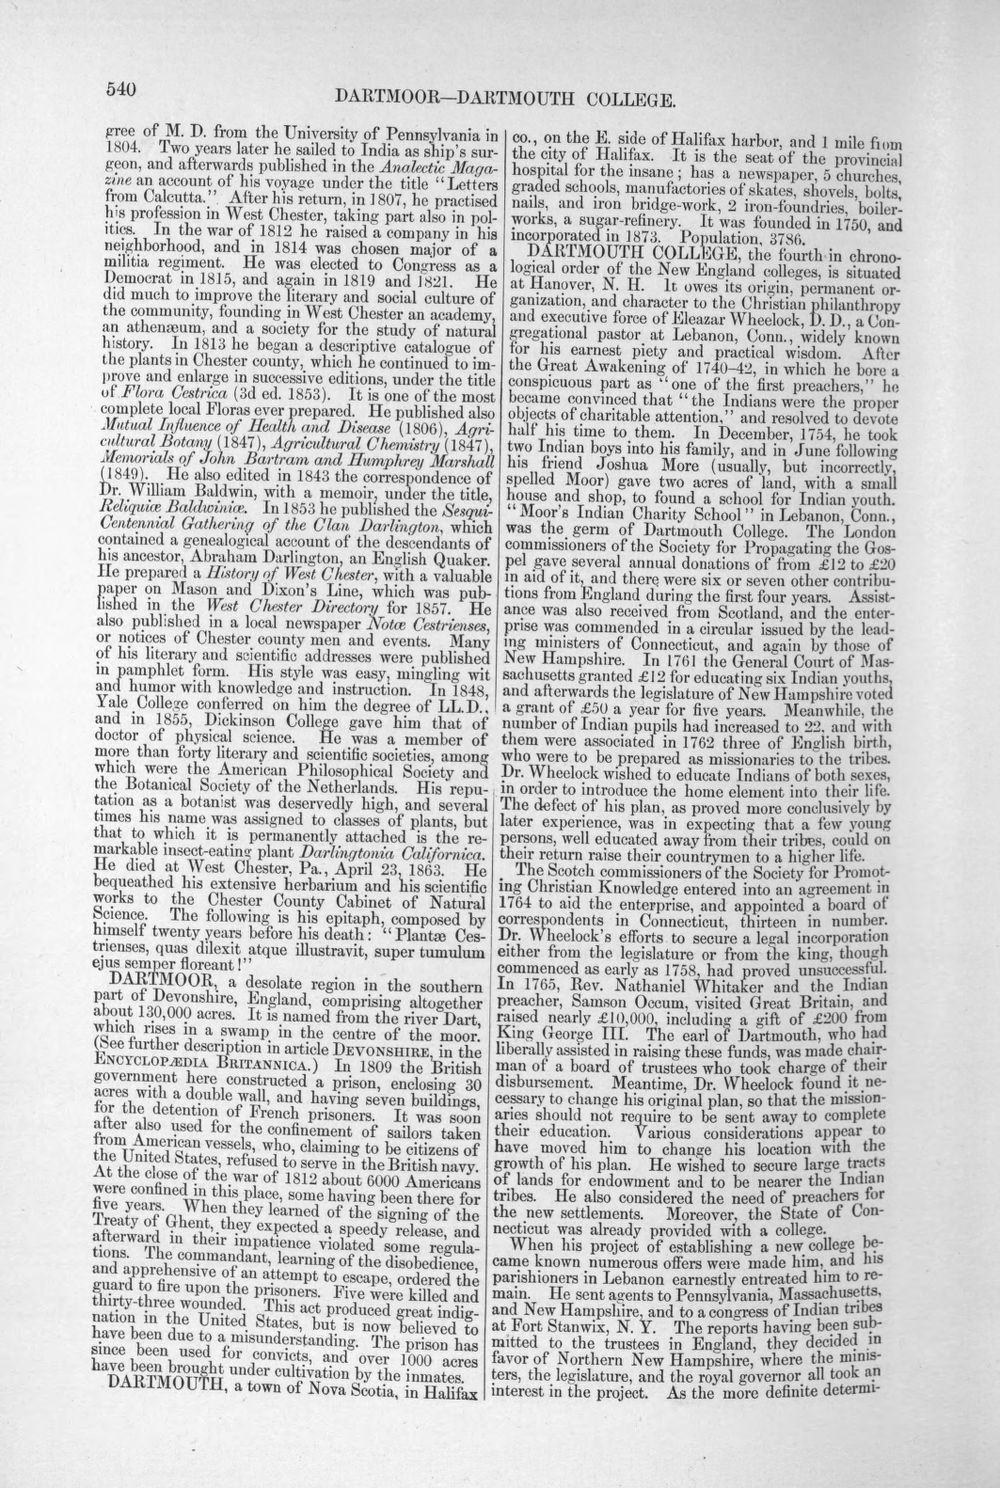 540
DARTMOOR—DARTMOUTH COLLEGE.
gree of M. D. from the University of Pennsylvania in
1804. Two years later he sailed to India as ship's sur-
geon, and afterwards published in the Analectic Maga-
zine an account of his voyage under the title "Letters
from Calcutta." After his return, in 1807, he practised
his profession in West Chester, taking part also in pol-
itics. In the war of 1812 he raised a company in his
neighborhood, and in 1814 was chosen major of a
militia regiment. He was elected to Congress as a
Democrat in 1815, and again in 1819 and 1821. He
did much to improve the literary and social culture of
the community, founding in West Chester an academy,
an athenæum, and a society for the study of natural
history. In 1813 he began a descriptive catalogue of
the plants in Chester county, which he continued to im-
prove and enlarge in successive editions, under the title
of Flora Cestrica (3d ed. 1853). It is one of the most
complete local Floras ever prepared. He published also
Mutual Influence of Health and Disease (1806), Agri-
cultural Botany (1847), Agricultural Chemistry (1847),
Memorials of John Bartram and Humphrey Marshall
(1849). He also edited in 1843 the correspondence of
Dr. William Baldwin, with a memoir, under the title,
Reliquiæ Baldwiniæ. In 1853 he published the Sesqui-
Centennial Gathering of the Clan Darlington, which
contained a genealogical account of the descendants of
his ancestor, Abraham Darlington, an English Quaker.
He prepared a History of West Chester, with a valuable
paper on Mason and Dixon's Line, which was pub-
lished in the West Chester Directory for 1857. He
also published in a local newspaper Notæ Cestrienses,
or notices of Chester county men and events. Many
of his literary and scientific addresses were published
in pamphlet form. His style was easy, mingling wit
and humor with knowledge and instruction. In 1848,
Yale College conferred on him the degree of LL.D.,
and in 1855, Dickinson College gave him that of
doctor of physical science. He was a member of
more than forty literary and scientific societies, among
which were the American Philosophical Society and
the Botanical Society of the Netherlands. His repu-
tation as a botanist was deservedly high, and several
times his name was assigned to classes of plants, but
that to which it is permanently attached is the re-
markable insect-eating plant Darlingtonia Californica.
He died at West Chester, Pa., April 23, 1863. He
bequeathed his extensive herbarium and his scientific
works to the Chester County Cabinet of Natural
Science. The following is his epitaph, composed by
himself twenty years before his death: "Plantæ Ces-
trienses, quas dilexit atque illustravit, super tumulum
ejus semper floreant!"
DARTMOOR, a desolate region in the southern
part of Devonshire, England, comprising altogether
about 130,000 acres. It is named from the river Dart,
which rises in a swamp in the centre of the moor.
(See further description in article DEVONSHIRE, in the
ENCYCLOPÆDIA BRITANNICA.) In 1809 the British
government here constructed a prison, enclosing 30
acres with a double wall, and having seven buildings,
for the detention of French prisoners. It was soon
after also used for the confinement of sailors taken
from American vessels, who, claiming to be citizens of
the United States, refused to serve in the British navy.
At the close of the war of 1812 about 6000 Americans
were confined in this place, some having been there for
five years. When they learned of the signing of the
Treaty of Ghent, they expected a speedy release, and
afterward in their impatience violated some regula-
tions. The commandant, learning of the disobedience,
and apprehensive of an attempt to escape, ordered the
guard to fire upon the prisoners. Five were killed and
thirty-three wounded. This act produced great indig-
nation in the United States, but is now believed to
have been due to a misunderstanding. The prison has
since been used for convicts, and over 1000 acres
have been brought under cultivation by the inmates.
DARTMOUTH, a town of Nova Scotia, in Halifax
co., on the E. side of Halifax harbor, and 1 mile from
the city of Halifax. It is the seat of the provincial
hospital for the insane; has a newspaper, 5 churches,
graded schools, manufactories of skates, shovels, bolts,
nails, and iron bridge-work, 2 iron-foundries, boiler-
works, a sugar-refinery. It was founded in 1750, and
incorporated in 1873. Population, 3786.
DARTMOUTH COLLEGE, the fourth in chrono-
logical order of the New England colleges, is situated
at Hanover, N. H. It owes its origin, permanent or-
ganization, and character to the Christian philanthropy
and executive force of Eleazar Wheelock, D. D., a Con-
gregational pastor at Lebanon, Conn., widely known
for his earnest piety and practical wisdom. After
the Great Awakening of 1740–42, in which he bore a
conspicuous part as "one of the first preachers," he
became convinced that "the Indians were the proper
objects of charitable attention," and resolved to devote
half his time to them. In December, 1754, he took
two Indian boys into his family, and in June following
his friend Joshua More (usually, but incorrectly,
spelled Moor) gave two acres of land, with a small
house and shop, to found a school for Indian youth.
"Moor's Indian Charity School" in Lebanon, Conn.,
was the germ of Dartmouth College. The London
commissioners of the Society for Propagating the Gos-
pel gave several annual donations of from £12 to £20
in aid of it, and there were six or seven other contribu-
tions from England during the first four years. Assist-
ance was also received from Scotland, and the enter-
prise was commended in a circular issued by the lead-
ing ministers of Connecticut, and again by those of
New Hampshire. In 1761 the General Court of Mas-
sachusetts granted £12 for educating six Indian youths,
and afterwards the legislature of New Hampshire voted
a grant of £50 a year for five years. Meanwhile, the
number of Indian pupils had increased to 22, and with
them were associated in 1762 three of English birth,
who were to be prepared as missionaries to the tribes.
Dr. Wheelock wished to educate Indians of both sexes,
in order to introduce the home element into their life.
The defect of his plan, as proved more conclusively by
later experience, was in expecting that a few young
persons, well educated away from their tribes, could on
their return raise their countrymen to a higher life.
The Scotch commissioners of the Society for Promot-
ing Christian Knowledge entered into an agreement in
1764 to aid the enterprise, and appointed a board of
correspondents in Connecticut, thirteen in number.
Dr. Wheelock's efforts to secure a legal incorporation
either from the legislature or from the king, though
commenced as early as 1758, had proved unsuccessful.
In 1765, Rev. Nathaniel Whitaker and the Indian
preacher, Samson Occum, visited Great Britain, and
raised nearly £10,000, including a gift of £200 from
King George III. The earl of Dartmouth, who had
liberally assisted in raising these funds, was made chair-
man of a board of trustees who took charge of their
disbursement. Meantime, Dr. Wheelock found it ne-
cessary to change his original plan, so that the mission-
aries should not require to be sent away to complete
their education. Various considerations appear to
have moved him to change his location with the
growth of his plan. He wished to secure large tracts
of lands for endowment and to be nearer the Indian
tribes. He also considered the need of preachers for
the new settlements. Moreover, the State of Con-
necticut was already provided with a college.
When his project of establishing a new college be-
came known numerous offers were made him, and his
parishioners in Lebanon earnestly entreated him to re-
main. He sent agents to Pennsylvania, Massachusetts,
and New Hampshire, and to a congress of Indian tribes
at Fort Stanwix, N. Y. The reports having been sub-
mitted to the trustees in England, they decided in
favor of Northern New Hampshire, where the minis-
ters, the legislature, and the royal governor all took an
interest in the project. As the more definite determi-